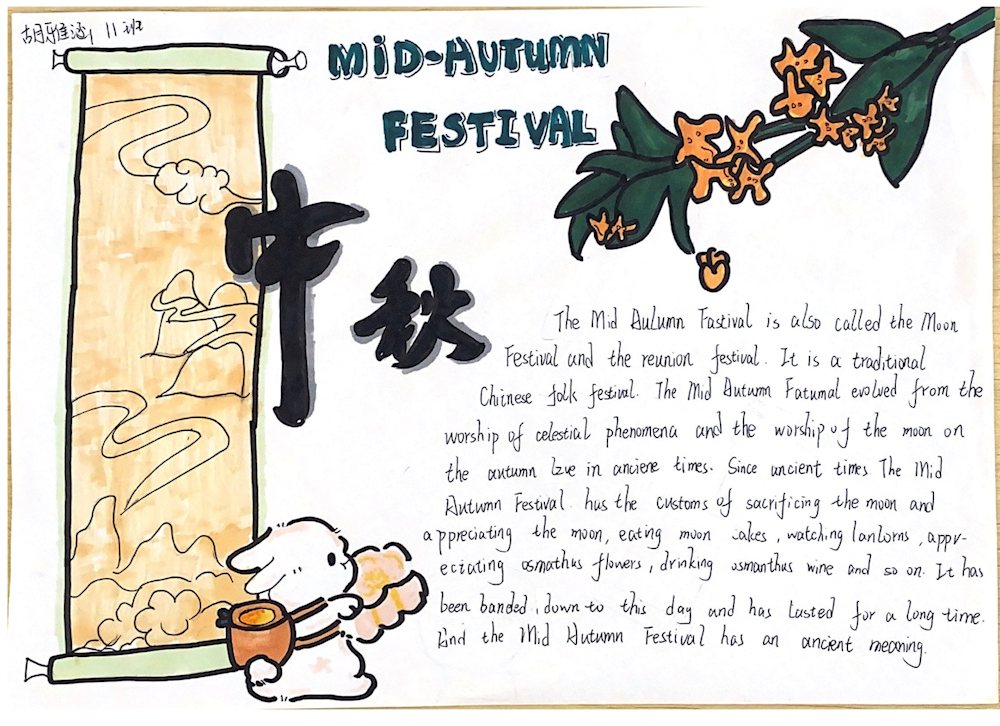 胡雅涵, 11班
MID-AUTUMN
FESTIVAL
中秋
The Mid Aulumn Fastival is also called the Moon
Festival and the reunion festival. It is a traditional
Chinese folk festival. The Mid Autumn Fatumal evolved from the
worship of celestial phenomena and the worship of the moon on
the autumn in anciene times. Since ancient times The Mid
Autumn Festival. hus the customs of sacrificing the moon and
appreciating the moon, eating moon cakes, watching lanlorns, appr-
eciating osmathus flowers, drinking osmanthus wine and so on. It has
been banded, down to this day and has lasted for a long time.
And the Mid Autumn Festival has an ancient meaning.